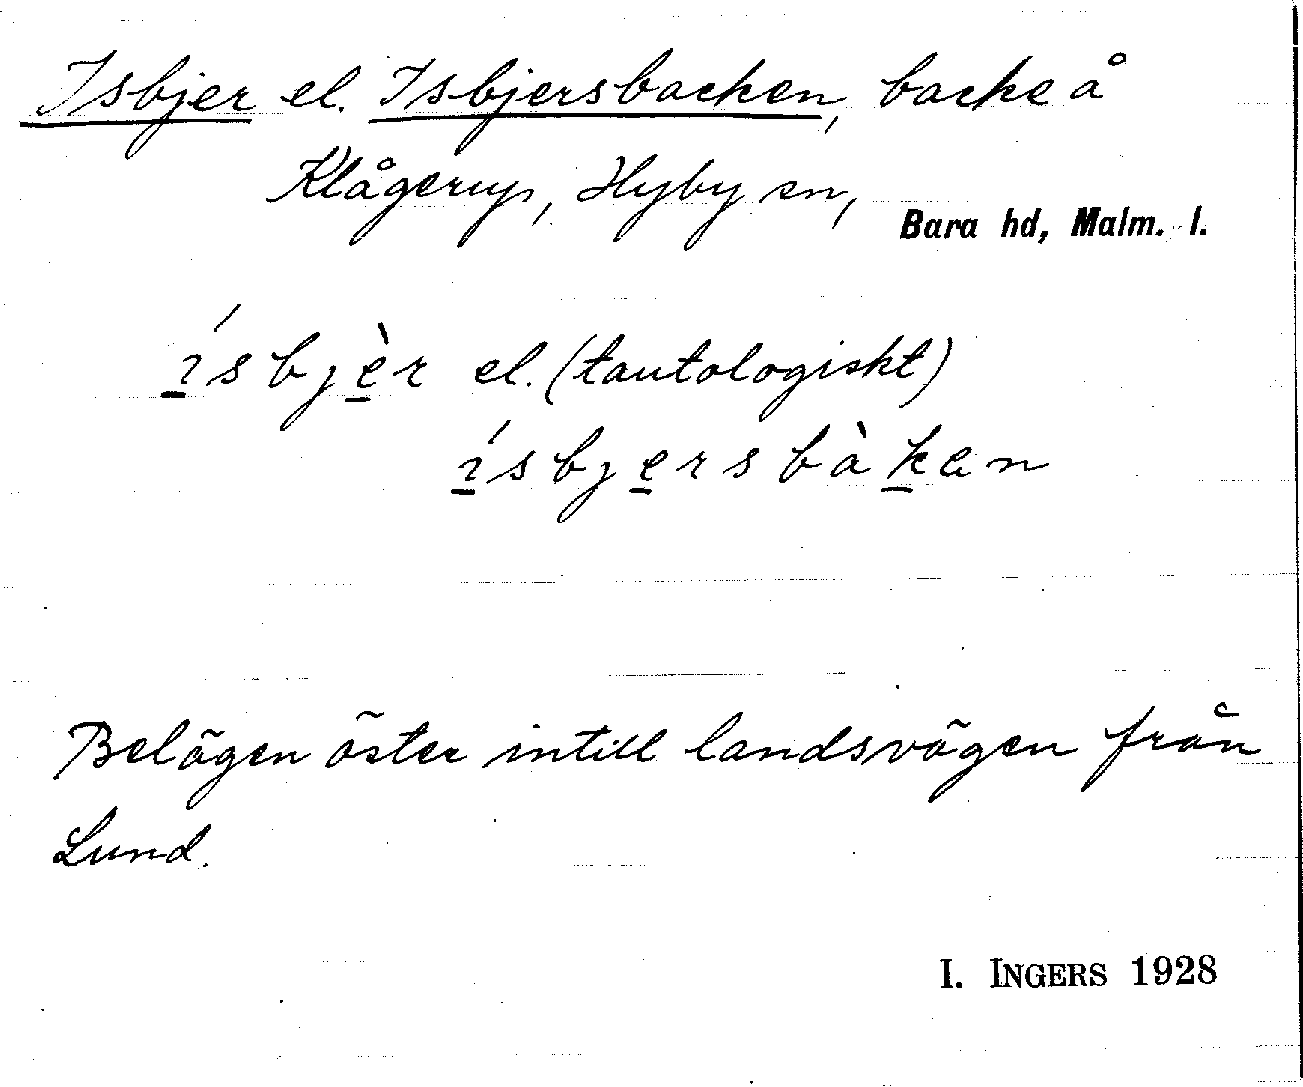 Isbjer el. Isbjersbacken, backe å
Klågerup, Hyby sn, Bara hd, Malm. l.
ísbjèr el. (tautologiskt)
ísbjersbàken
Belägen öster intill landsvägen från
Lund.
I. INGERS 1928